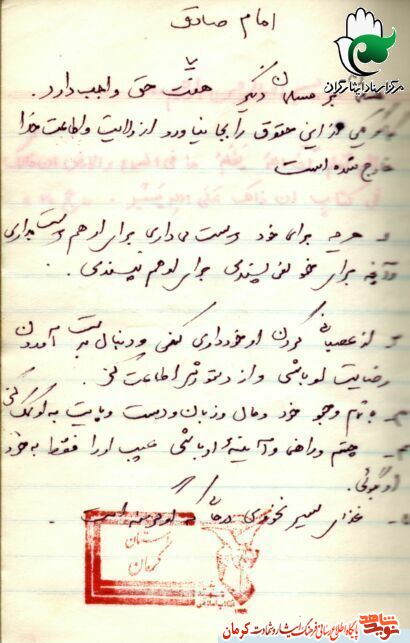 مرکز اسناد ایثارگران
امام صادق
بر مسلمان دیگر هفت حق واجب دارد.
۷
یکی از این حقوق را بجا نیاورد از ولایت و اطاعت خدا
خارج شده است
هر چه برای خود دوست می داری برای او هم دوست بداری
و آنچه برای خود نمی پسندی برای او هم نپسندی.
از عصبانی کردن او خودداری کنی و دنبال بدست آوردن
رضایت او باشی و از دستوراتش اطاعت کنی.
با تمام وجود خود و مال و زبان و دست و پایت به او کمک کنی
چشم و راهنما و آینهٔ او باشی عیب او را فقط به خود
او بگوئی.
غذای سیر نخوری که او گرسنه است.
استان
کرمان
نوید شاهد
پایگاه اطلاع رسانی فرهنگ ایثار و شهادت کرمان